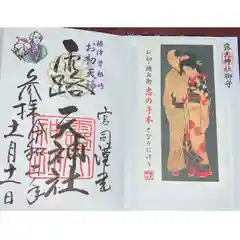 摂津曽根崎
お初天神
露
天神社
参拝
十一月十一日
宮司謹書
露天神社御守
お初・徳兵衛
恋の手本
となりにけり